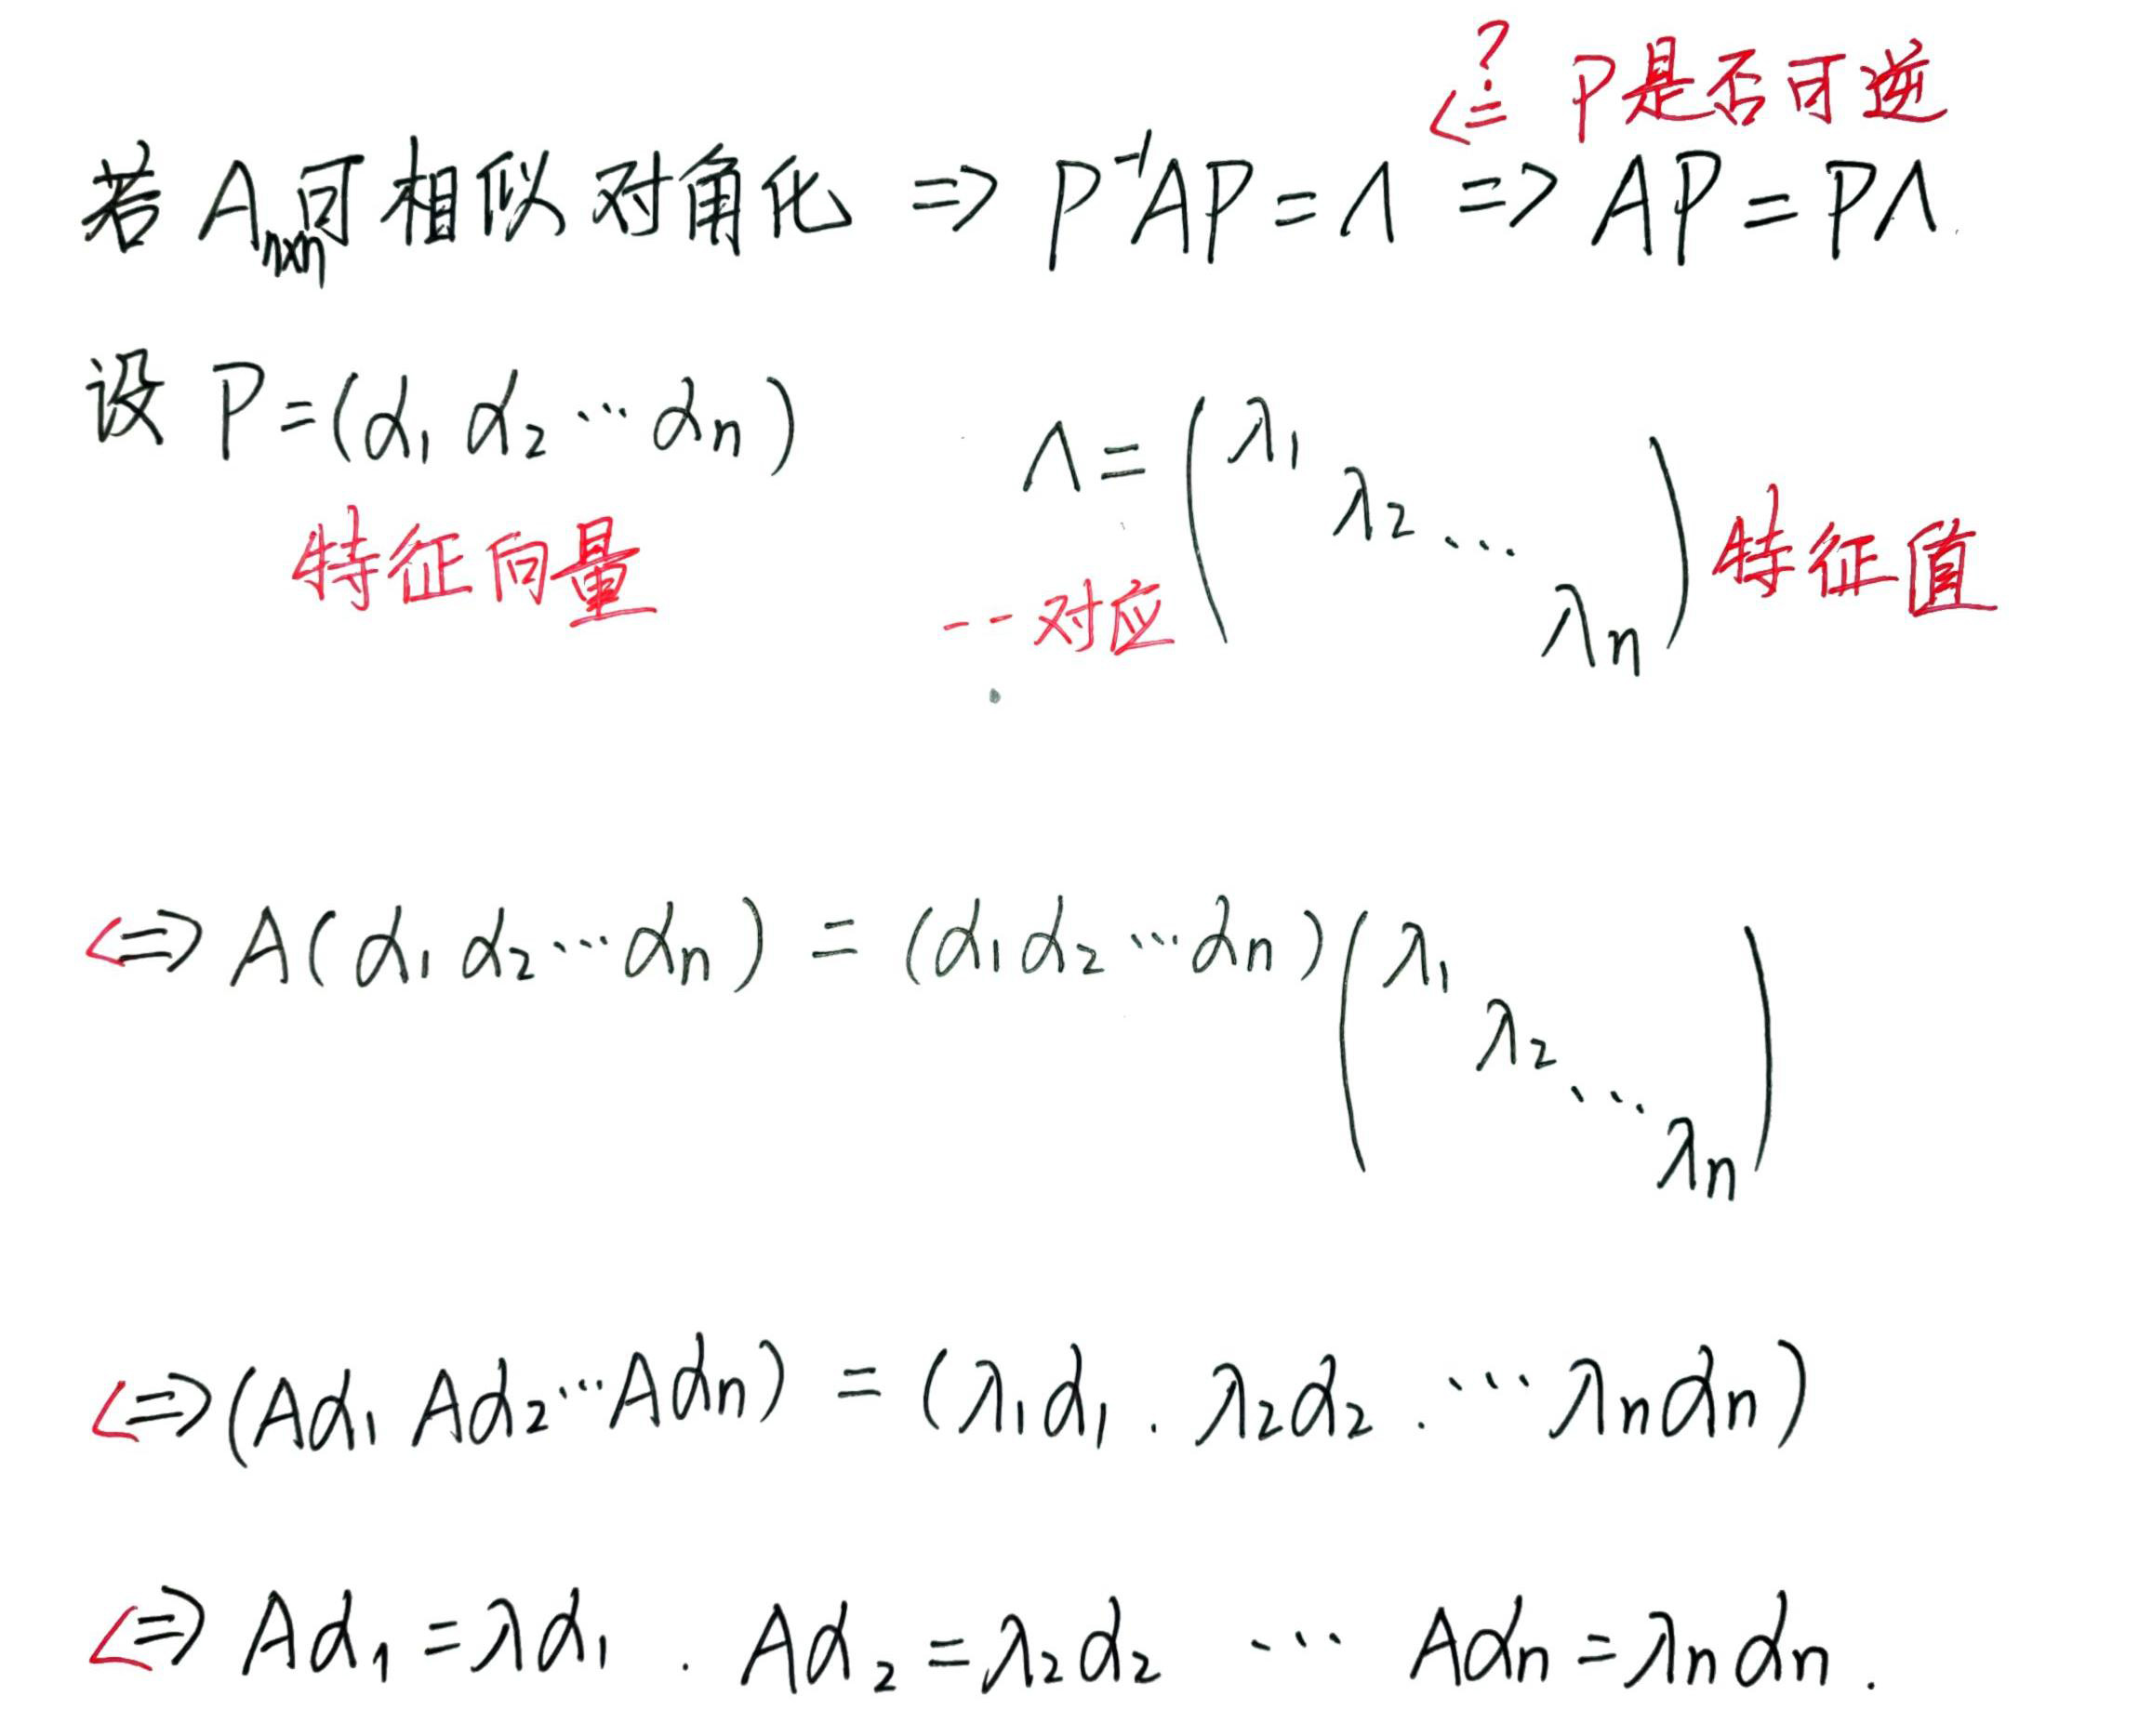 <=? P是否可逆
若 Aₙₓₙ可相似对角化 => P⁻¹AP=Λ => AP=PΛ.
设 P=(α₁ α₂ ⋯ αₙ)
Λ=(λ₁ λ₂ ⋱ λₙ) 特征值
特征向量
一一对应
<=> A(α₁ α₂ ⋯ αₙ) = (α₁ α₂ ⋯ αₙ)(λ₁ λ₂ ⋱ λₙ)
<=> (Aα₁ Aα₂ ⋯ Aαₙ) = (λ₁α₁ . λ₂α₂ . ⋯ λₙαₙ)
<=> Aα₁=λα₁ . Aα₂=λ₂α₂ ⋯ Aαₙ=λₙαₙ.